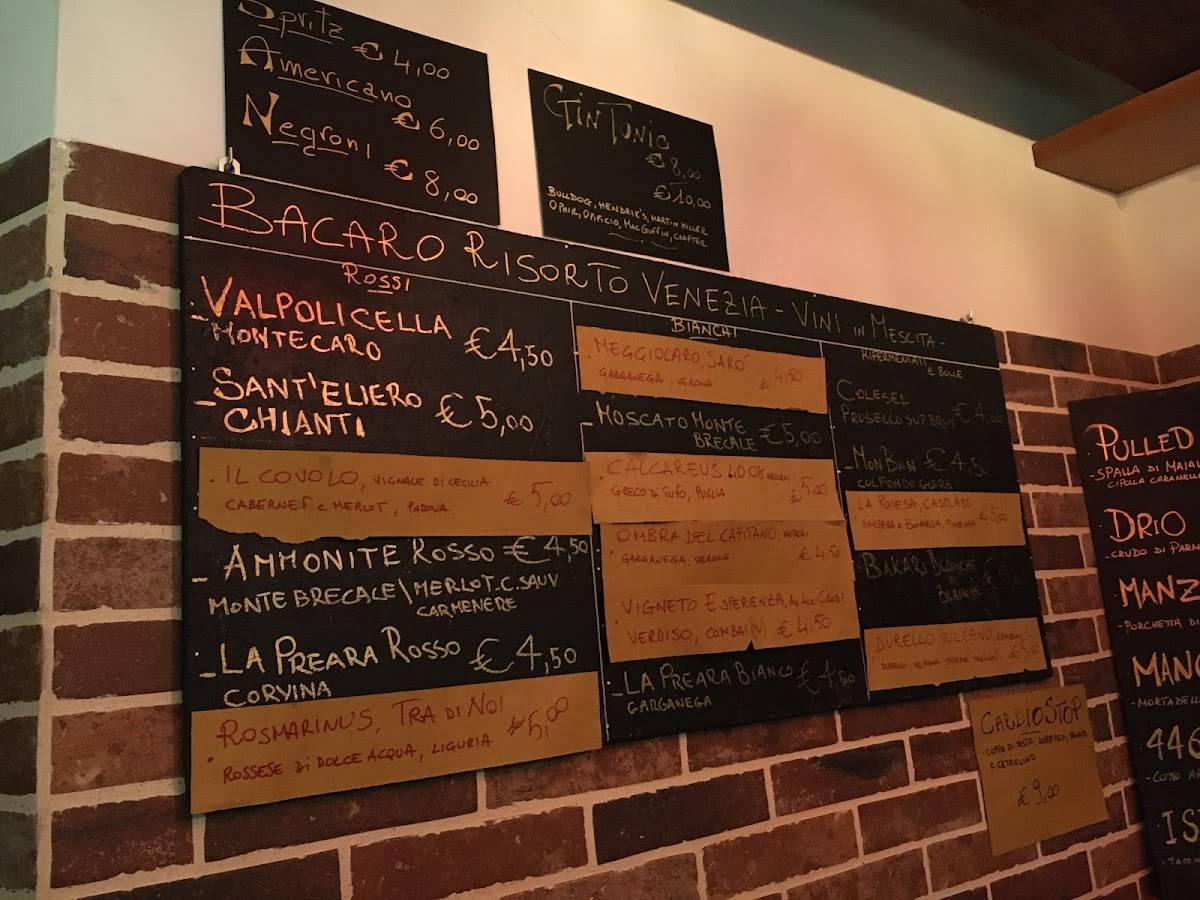 Spritz € 4,00
Americano
€ 6,00
Negroni
€ 8,00
Gin Tonic
€ 8,00
€ 10,00
BULLDOG, HENDRIK'S, MARTIN MILLER
OPHIR, OPIFICIO, MACGUFFIN, CRAFTER
BACARO RISORTO VENEZIA - VINI IN MESCITA -
ROSSI
- VALPOLICELLA
MONTECARO
€ 4,50
- SANT'ELIERO
CHIANTI
€ 5,00
· IL COVOLO, VIGNALE DI CECILIA
CABERNET e MERLOT, PADOVA
€ 5,00
- AMMONITE ROSSO € 4,50
MONTE BRECALE\MERLOT-C.SAUV
CARMENERE
- LA PREARA ROSSO € 4,50
CORVINA
ROSMARINUS, TRA DI NOI
€ 5,00
ROSSESE DI DOLCE ACQUA, LIGURIA
BIANCHI
MEGGIOLARO, SARÓ
GARGANEGA, VERONA
€ 4,50
- MOSCATO MONTE
BRECALE € 5,00
CALCAREUS
GRECO DI TUFO, PUGLIA
€ 5,00
OMBRA DEL CAPITANO,
GARGANEGA, VERONA
€ 4,50
VIGNETO ESPERIENZA,
VERDISO, COMBAI (TV) € 4.50
- LA PREARA BIANCO € 4,50
GARGANEGA
RIFERMENTATI
e BOLLE
COLESEL
PROSECCO SUP. BRUT € 4,00
- MONBAN € 4,50
COLFONDO GLERA
LA POIESA,
BARBERA e BONARDA, PIACENZA
€ 5,00
- BAKARI BLANCHE
DE
BLANCHE
DURELLO VULCANO,
€ 5,00
CAGLIOSTOP
€ 9,00
PULLED
- SPALLA DI MAIAL
CIPOLLA CARAMELL
DRIO
- CRUDO DI PARM
MANZ
- PORCHETTA DI
MANG
- MORTADELL
446
IS